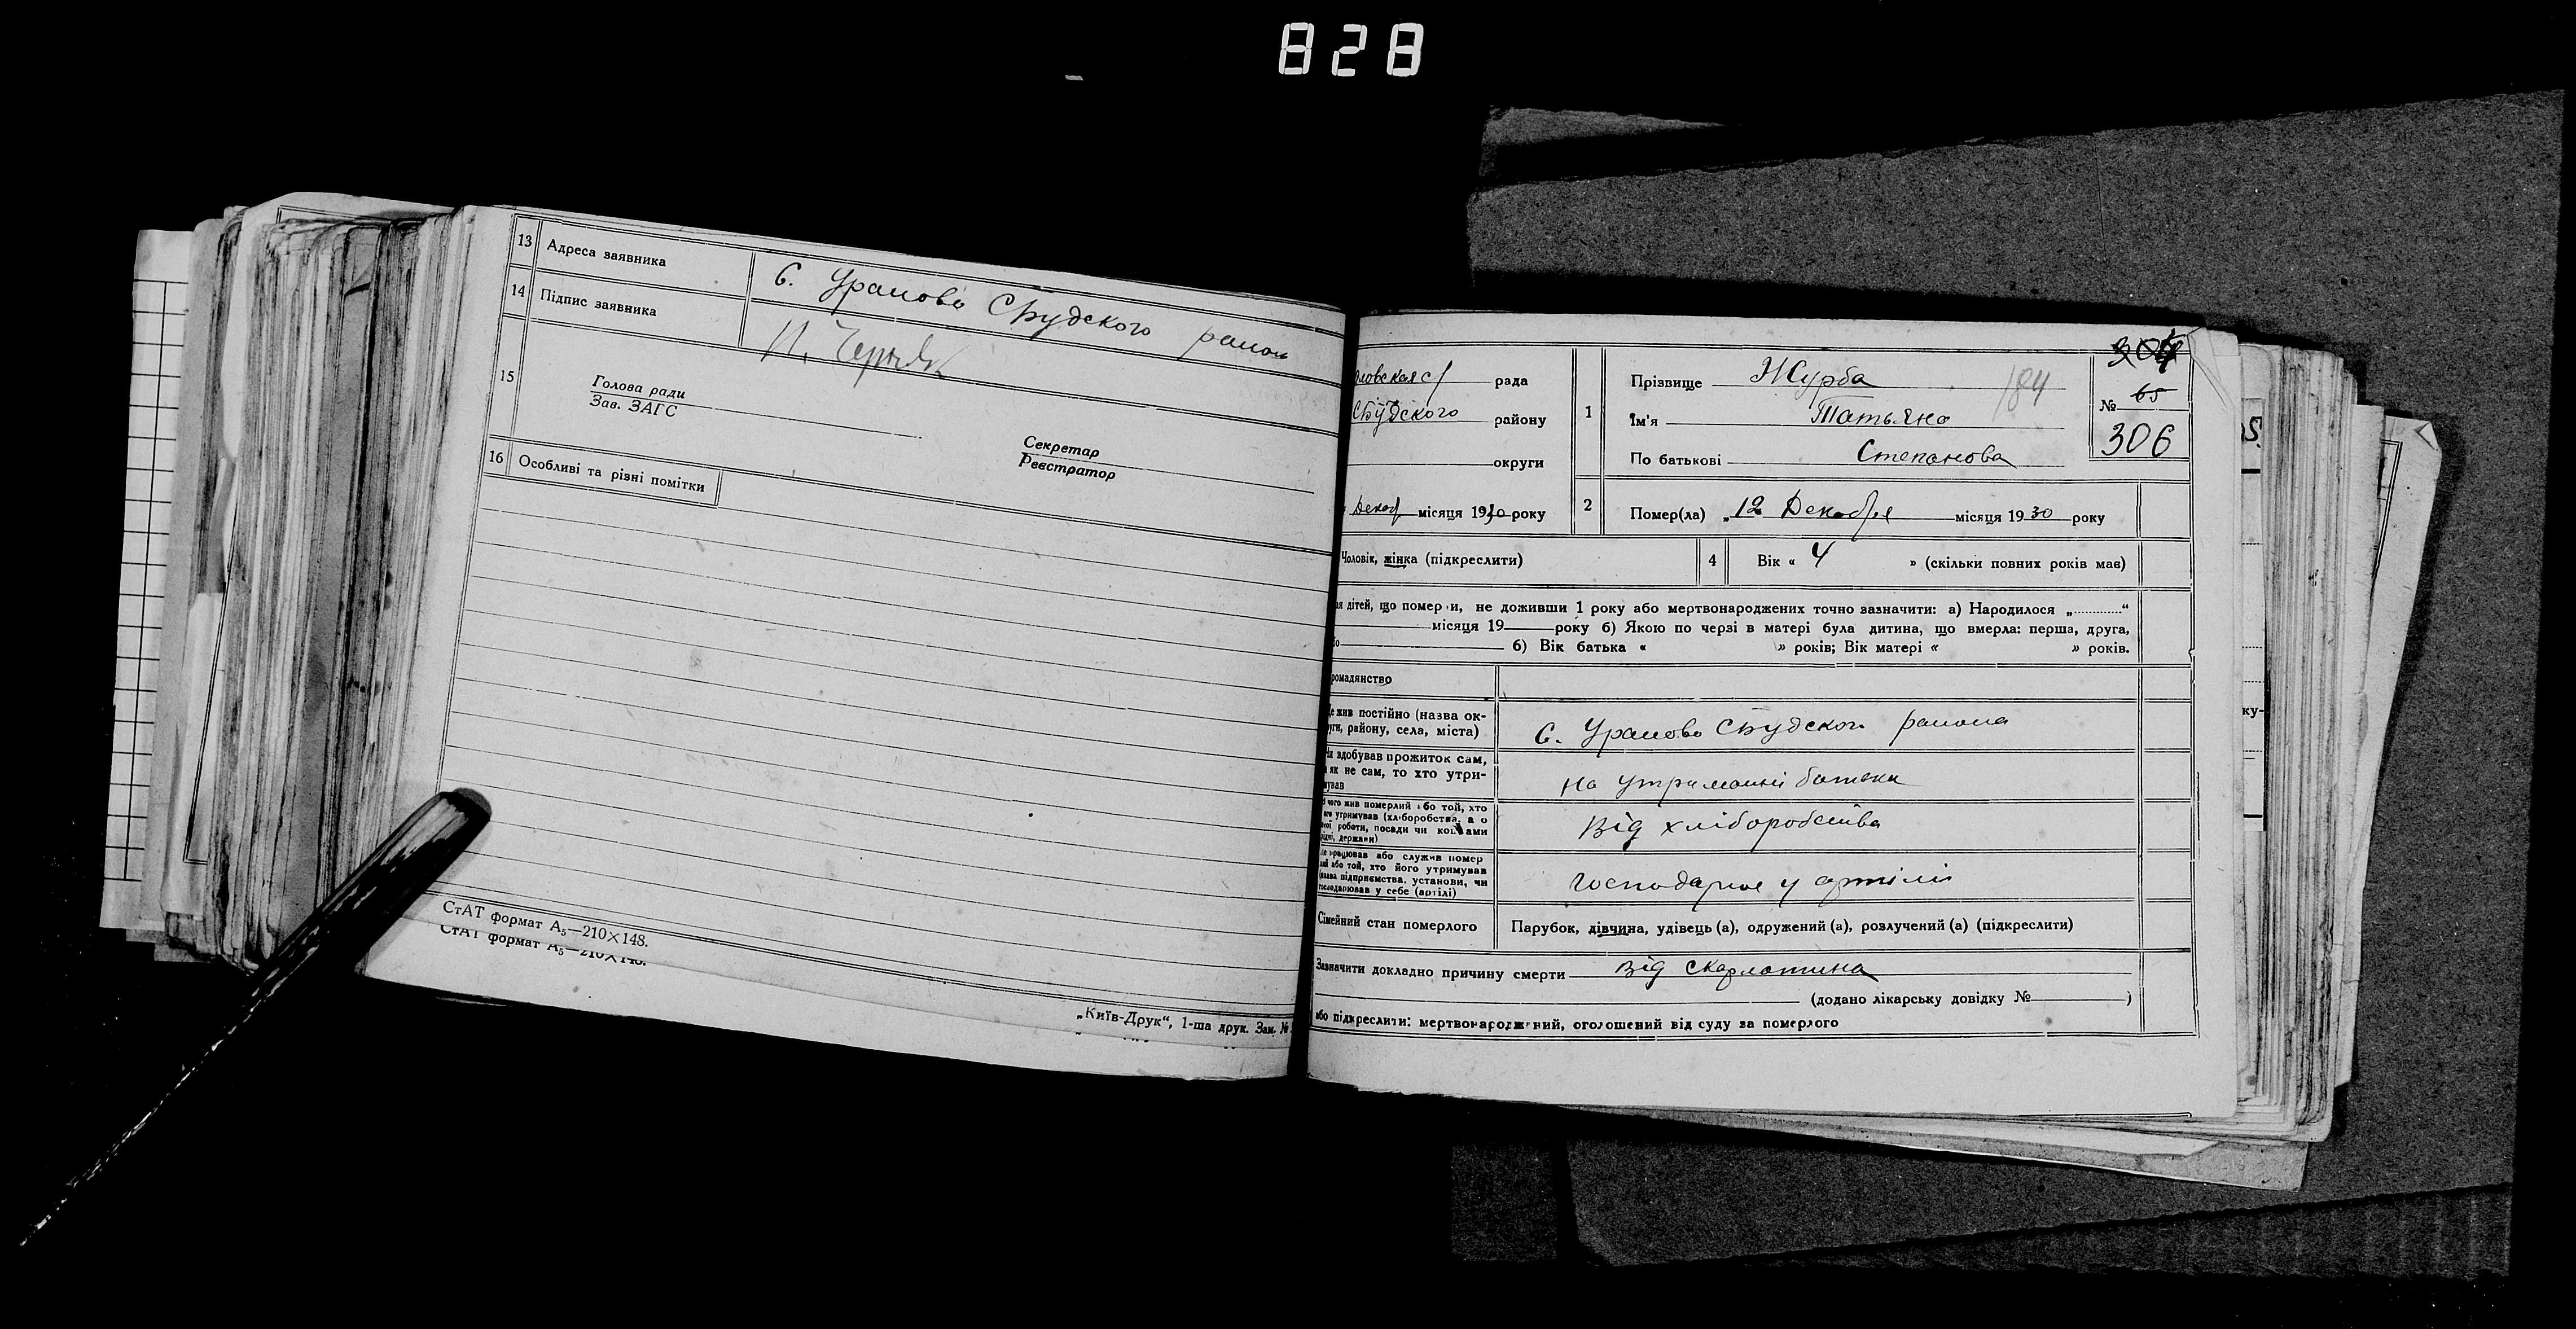 828
13 Адреса заявника С. Уралово СБудского район
14 Підпис заявника
15 Голова ради
Зав. ЗАГС
Секретар
Реєстратор
16 Особливі та різні помітки
СтАТ формат А5—210×148.
СтАТ формат А5—210×148.
„Київ-Друк“, 1-ша друк. Зам. №
304
№ 65
306
ловская с/ рада
СБудского району
округи
Декаб місяця 1930 року
1 Прізвище Журба 184
Ім'я Татьяна
По батькові Степанова
2 Помер(ла) „12 Декабря місяця 1930 року
Чоловік, жінка (підкреслити)
4 Вік « 4 » (скільки повних років має)
ля дітей, що померли, не доживши 1 року або мертвонароджених точно зазначити: а) Народилося „............“
місяця 19 року б) Якою по черзі в матері була дитина, що вмерла: перша, друга,
б) Вік батька « » років; Вік матері « » років.
ромадянство
е жив постійно (назва ок-
руги, району, села, міста) С. Уралово СБудског района
здобував прожиток сам,
як не сам, то хто утри-
мував на утриманні батька
чого жив померлий або той, хто
його утримував (хліборобства, а о
роботи, посади чи коштами
держави) Від хліборобства
працював або служив помер
або той, хто його утримував
(назва підприємства, установи, чи
господарював у себе (артілі) господарює у артілі
Сімейний стан померлого Парубок, дівчина, удівець (а), одружений (а), розлучений (а) (підкреслити)
Зазначити докладно причину смерти від скарлатина
(додано лікарську довідку № )
або підкреслити: мертвонароджений, оголошений від суду за померлого